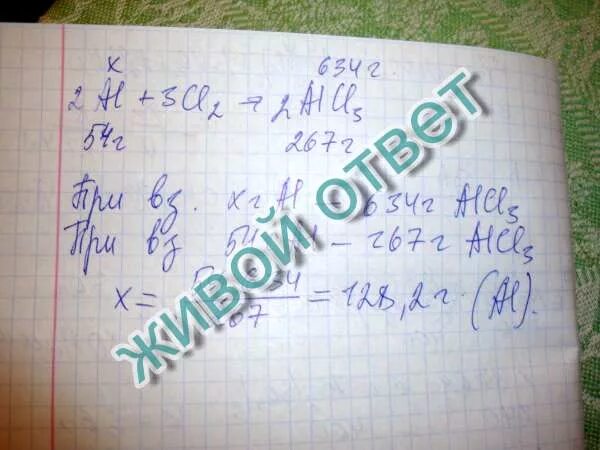 x 634 г.
2Al + 3Cl2 → 2AlCl3
54г 267 г
При вз. x г Al – 634 г AlCl3
При вз 54 – 267 г AlCl3
x = = 128,2 г. (Al).
ЖИВОЙ ОТВЕТ